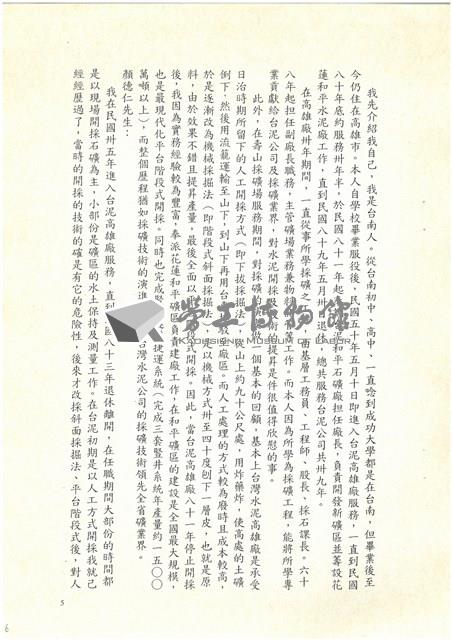 我先介紹我自己，我是台南人。從台南初中、高中、一直唸到成功大學都是在台南，但畢業後至
今仍住在高雄市。本人自學校畢業服役後，民國五十年五月十日即進入台泥高雄廠服務，一直到民國
八十年底約服務卅年半，於民國八十一年起 和平石礦廠担任廠長，負責開發新礦區並籌設花
蓮和平水泥廠工作，直到民國八十九年五月卅 退休 總共服務台泥公司共卅九年。
在高雄廠卅年期間，一直從事所學採礦之 而基層工務員、工程師、股長、採石課長。六十
八年起担任副廠長職務，主管礦場業務兼物料 等工作。而本人因為所學為採礦工程，能將所學專
業貢獻給台泥公司及採礦業界，對水泥開採及 術的提昇是件很值得欣慰的事。
此外，在壽山採礦場服務期間，對採礦的 個基本的回顧，基本上台灣水泥高雄廠是承受
日治時期所留下的人工開採方式（即下拔採掘法 從山上約九十公尺處，用炸藥炸，使高處的土礦
倒下，然後用流籠運輸至山下，到山下再用台 搬至廠區。而人工處理的方式較為廢時且成本較高，
於是逐漸改為機械採掘法（即階段式斜面採掘法 是以機械方式卅至四十度刨下一層皮，也就是原
料，由於效果不錯且提昇產量，最後全面以平 段式開採。因此，當台泥高雄廠八十一年停止開採
後，我因為實務經驗較為豐富，奉派花蓮和平礦區負責建廠工作，在和平礦區的建設是全國最大規模，
也是最現代化平台階段式開採。同時也完成豎井 捷運系統（完成三套豎井系統年產量約一五○○
萬噸以上），而整個歷程猶如採礦技術的演進 台灣水泥公司的採礦技術領先全省礦業界。
顏德仁先生：
我在民國卅五年進入台泥高雄廠服務，直到 國八十三年退休離開，在任職期間大部份的時間都
是以現場開採石礦為主，小部份是礦區的水土保持及測量工作。在台泥初期是以人工方式開採我就已
經經歷過了，當時的開採的技術的確是有它的危險性，後來才改採斜面採掘法、平台階段式後，對人
勞工博物館
KAOHSIUNG MUSEUM OF LABOR
5
6